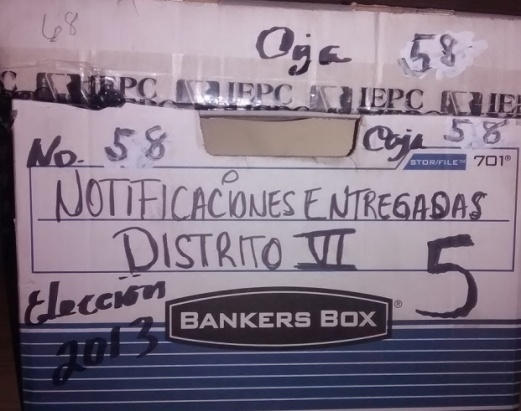 68
Caja 58
IEPC IEPC IE
No. 58 Caja 58
STOR/FILE™ 701®
NOTIFICACIONES ENTREGADAS
DISTRITO VI 5
Elección
2013
BANKERS BOX®